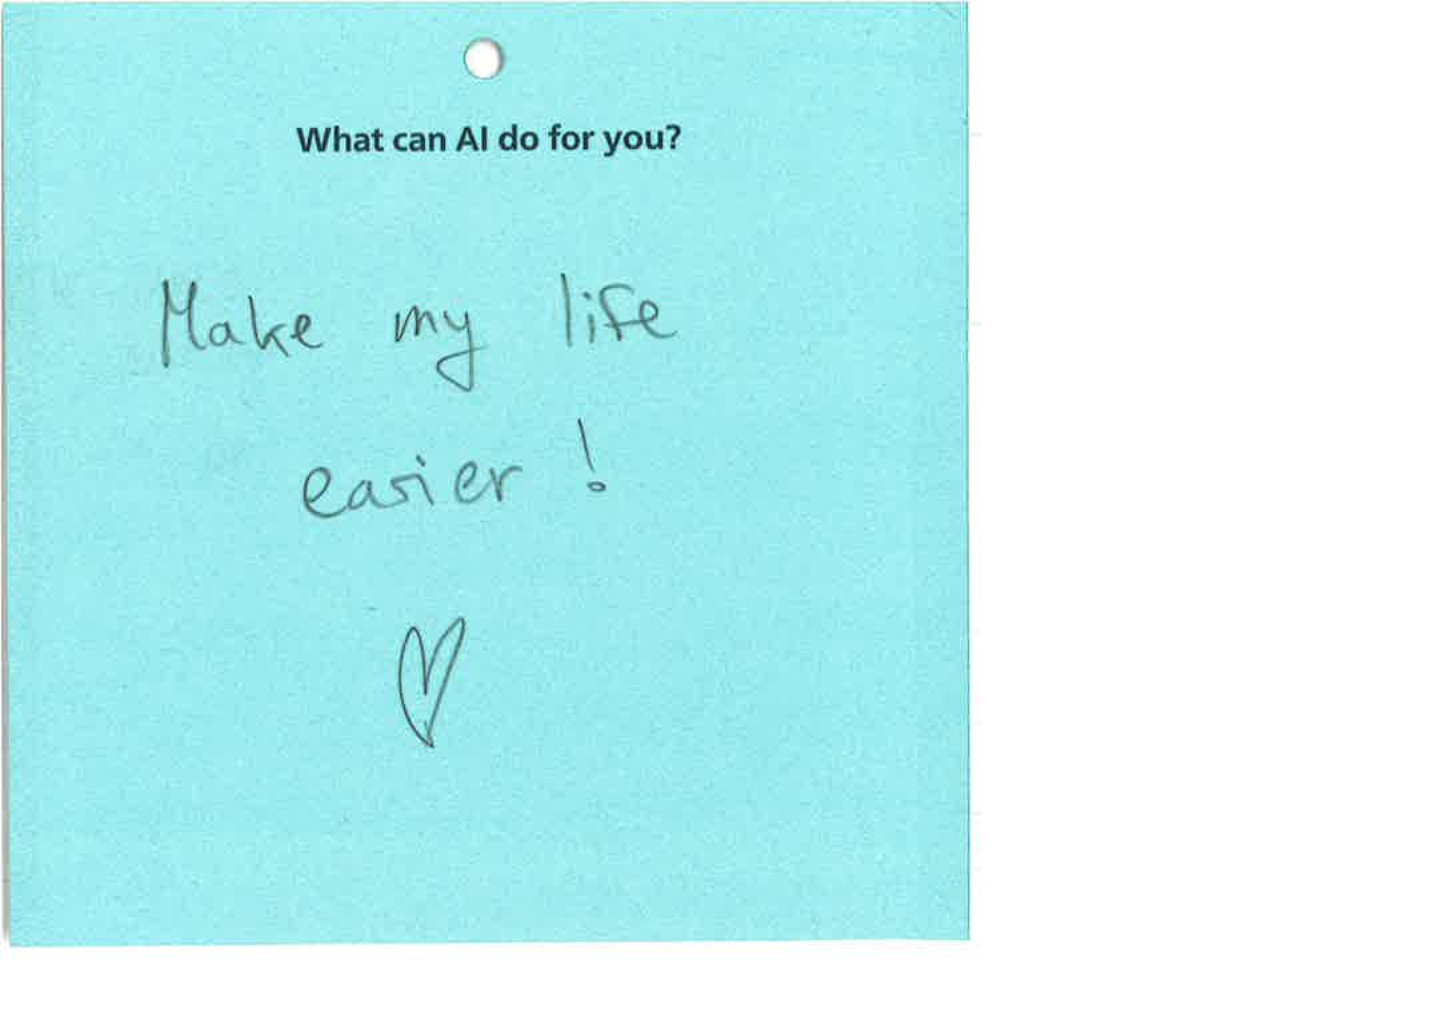 What can AI do for you?
Make my life
easier!